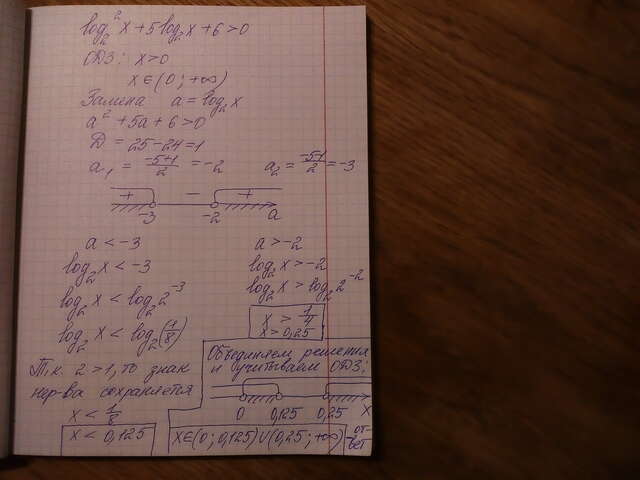 log₂² x + 5 log₂ x + 6 > 0
ОДЗ: x > 0
x ∈ (0; +∞)
Замена a = log₂ x
a² + 5a + 6 > 0
D = 25 - 24 = 1
a₁ = (-5+1)/2 = -2 a₂ = (-5-1)/2 = -3
+ - +
-3 -2 a
a < -3
log₂ x < -3
log₂ x < log₂ 2⁻³
log₂ x < log₂ (1/8)
Т.к. 2 > 1, то знак
нер-ва сохраняется
x < 1/8
x < 0,125
a > -2
log₂ x > -2
log₂ x > log₂ 2⁻²
x > 1/4
x > 0,25
Объединяем решения
и учитываем ОДЗ:
0 0,125 0,25 x
x ∈ (0; 0,125) ∪ (0,25; +∞) - от-
вет